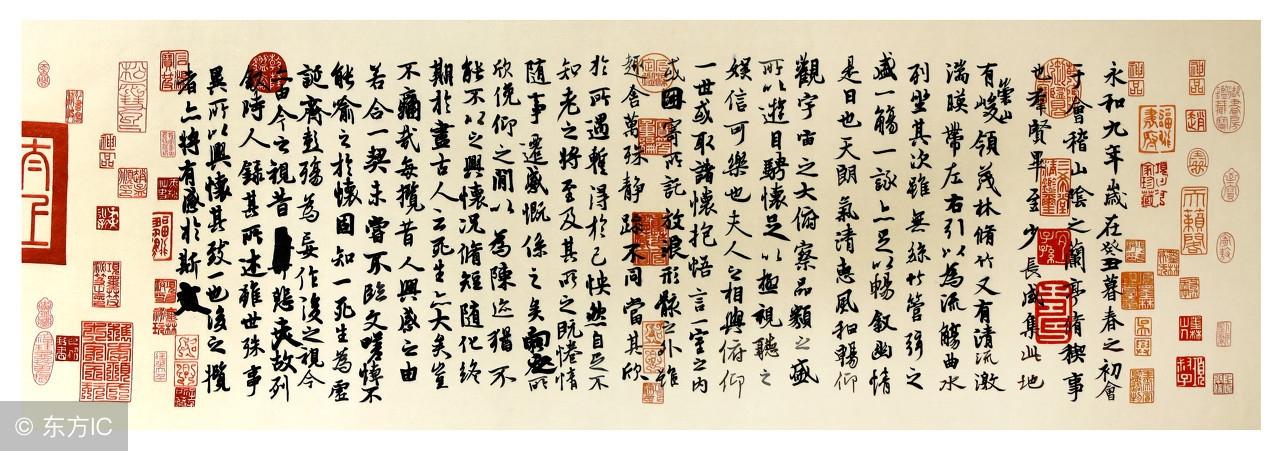 永和九年歲在癸丑暮春之初會
于會稽山陰之蘭亭脩稧事
也羣賢畢至少長咸集此地
有崇山峻領茂林脩竹又有清流激
湍暎帶左右引以為流觴曲水
列坐其次雖無絲竹管弦之
盛一觴一詠亦足以暢叙幽情
是日也天朗氣清惠風和暢仰
觀宇宙之大俯察品類之盛
所以遊目騁懷足以極視聽之
娛信可樂也夫人之相與俯仰
一世或取諸懷抱悟言一室之内
或因寄所託放浪形骸之外雖
趣舍萬殊静躁不同當其欣
於所遇蹔得於己怏然自足不
知老之將至及其所之既惓情
隨事遷感慨係之矣向之所
欣俛仰之閒以為陳迹猶不
能不以之興懷況脩短隨化終
期於盡古人云死生亦大矣豈
不痛哉每攬昔人興感之由
若合一契未嘗不臨文嗟悼不
能喻之於懷固知一死生為虛
誕齊彭殤為妄作後之視今
亦由今之視昔悲夫故列
叙時人錄其所述雖世殊事
異所以興懷其致一也後之攬
者亦將有感於斯文
© 东方IC